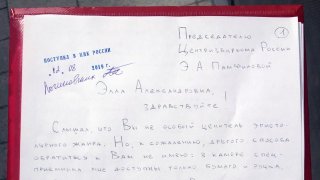 Председателю
①
Центризбиркома России
Э А Памфиловой
ПОСТУПИЛО В ЦИК РОССИИ
12 08 2019 г.
Элла Александровна,
здравствуйте!
Слышал, что Вы не особый ценитель эписто-
лярного жанра. Но, к сожалению, другого способа
обратиться к Вам не имею: в камере спец-
приемника мне доступны только бумага и ручка,